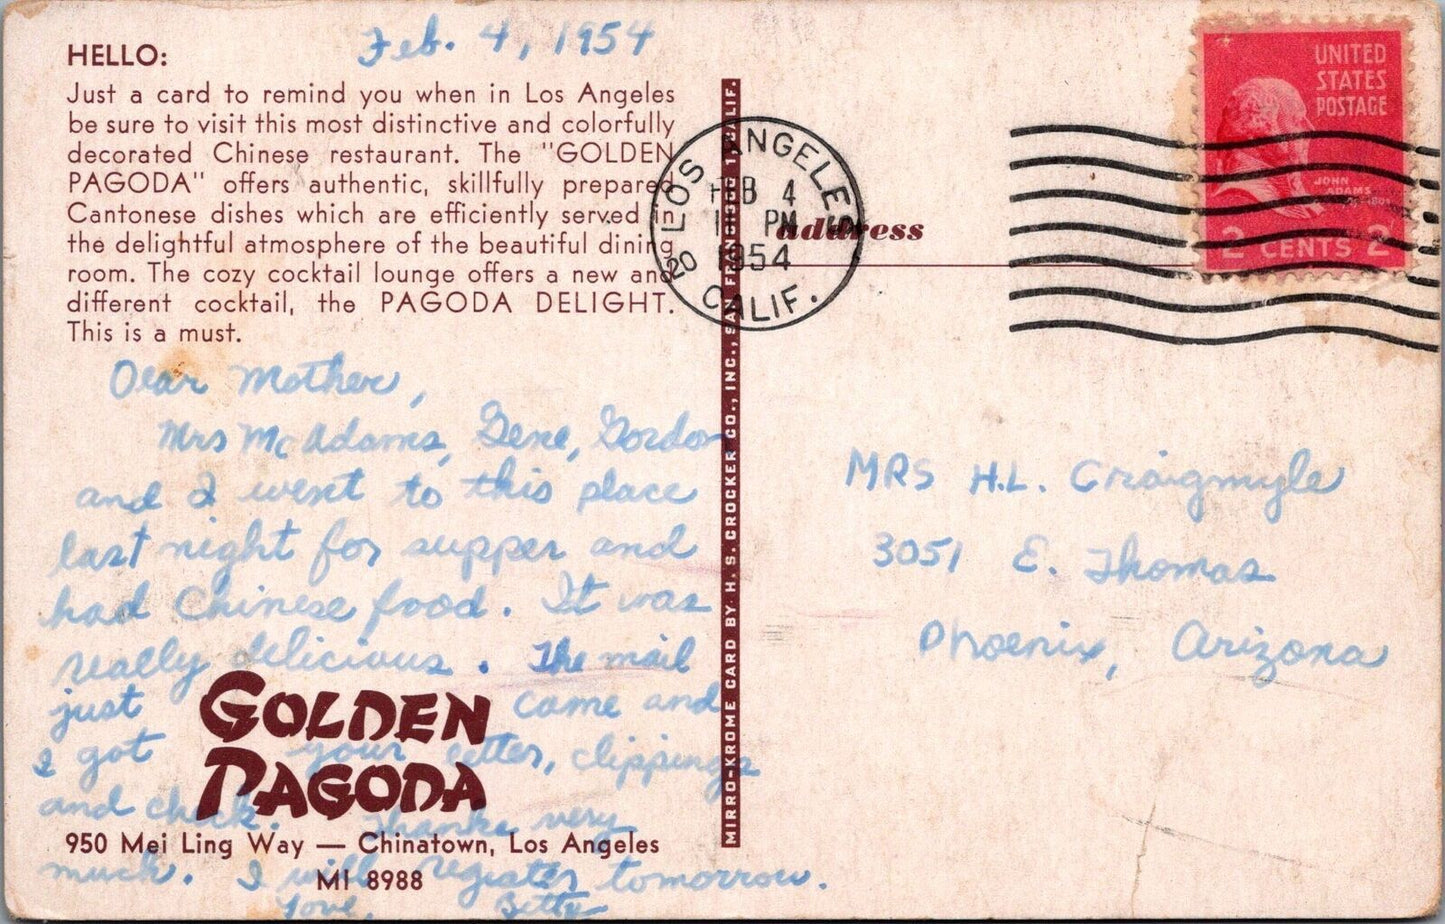 Feb. 4, 1954
HELLO:
Just a card to remind you when in Los Angeles
be sure to visit this most distinctive and colorfully
decorated Chinese restaurant. The "GOLDEN
PAGODA" offers authentic, skillfully prepared
Cantonese dishes which are efficiently served in
the delightful atmosphere of the beautiful dining
room. The cozy cocktail lounge offers a new and
different cocktail, the PAGODA DELIGHT.
This is a must.
Dear Mother,
Mrs McAdams, Gene, Gordon
and I went to this place
last night for supper and
had Chinese food. It was
really delicious. The mail
just came and
I got your letter, clippings
and check. Thanks very
much. I will register tomorrow.
Love, Betty
GOLDEN
PAGODA
950 Mei Ling Way — Chinatown, Los Angeles
MI 8988
MIRRO-KROME CARD BY H. S. CROCKER CO., INC., SAN FRANCISCO 1, CALIF.
LOS ANGELES
FEB 4
PM
1954
20 CALIF.
address
UNITED
STATES
POSTAGE
JOHN
ADAMS
2 CENTS 2
MRS H.L. Craigmyle
3051 E. Thomas
Phoenix, Arizona